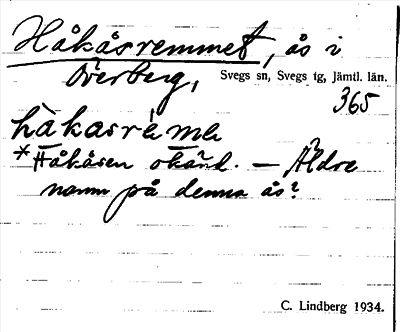 Håkåsremmet, ås i
Överberg, Svegs sn, Svegs tg, Jämtl. län.
365
hàkasrèmɐ
*Håkåsen okänd. — Äldre
namn på denna ås?
C. Lindberg 1934.